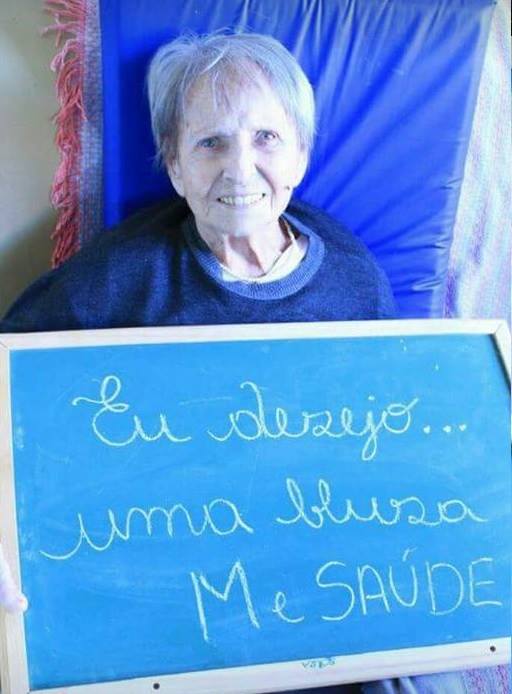 Eu desejo...
uma blusa
M e SAÚDE